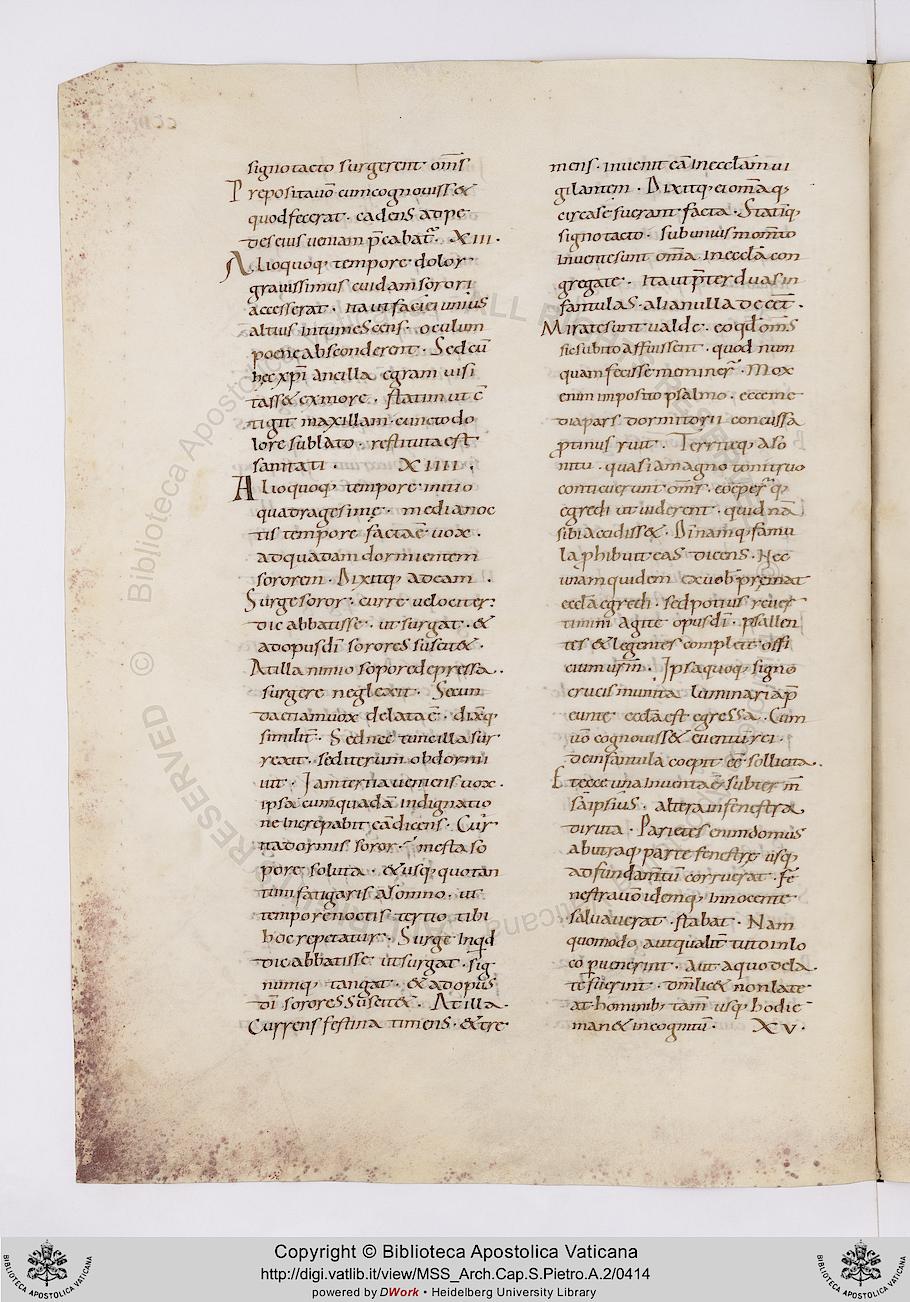 signo tacto surgerent om̄s
Preposita uō cum cognouiss&
quod fecerat · cadens ad pe
des eius ueniam p̄cabat᷑ · XIII ·
Alio quoq; tempore dolor
grauissimus cuidam sorori
accesserat · ita ut faciei unius
altius intumescens · oculum
poene absconderent · Sed cū
hec xp̄i ancilla egram uisi
tass& ex more · statim ut c̄
tigit maxillam · cuncto do
lore sublato · restituta est
sanitati · XIIII ·
Alio quoq; tempore initio
quadragesimę · medianoc
tis tempore facta ē uox ·
ad quadam dormientem
sororem · Dixitq; ad eam ·
Surge soror · curre uelociter ·
dic abbatisse · ut surgat · &
ad opus dī sorores suscit& ·
At illa nimio sopore depressa ·
surgere neglexit · Secun
da etiam uox delata ē · dixq;
similit̄ · Sed nec tunc illa sur
rexit · sed iterum obdormi
uit · Iam terna ueniens uox ·
ipsā cum quadā indignatio
ne increpabit eā dicens · Cur
ita dormis soror · mesta so
pore soluta · & usq; quo tan
tum fatigaris a somno · ut
tempore noctis tertio tibi
hoc repetatur · Surge inqd
dic abbatisse ut surgat · sig
numq; tangat · & ad opus
dī sorores suscit& · At illa ·
Currens festina timens · & tre
mens · inuenit eā in ecclā ui
gilantem · Dixitq; ei om̄a q;
circa se fuerant facta · Statiq;
signo tacto · sub unius mom̄to
inuente sunt om̄a in ecclā con
gregate · ita ut p̄ter duas in
fantulas · alia nulla de eēt ·
Mirate sunt ualde · eo qd om̄s
sic subito affuissent · quod num
quam fecisse meminer̄ · Mox
enim imposito psalmo · ecce me
dia pars dormitorii concussa
ꝓtinus ruit · Territeq; a so
nitu · quasi a magno tonitruo
conticuerunt om̄s · coeper̄q;
egredi ut uiderent · quid nā
sibi accidiss& · Dī namq; famu
la phibuit eas dicens · Nec
unam quidem ex uob̄ p̄remat
ecclā egredi · sed potius reuer
timini agite opus dī · psallen
tes & legentes complete offi
cium ur̄m · Ipsa quoq; signo
crucis munita luminaria p̄
eunte ecclā est egressa · Cum
uō cognouiss& euentū rei ·
dein famula coepit eē sollicita ·
Et ecce una inuenta ē · subter m̄
sā ipsius · altera in fenestra
diruta · Parietes enim domus
ab utraq; parte fenestre usq;
ad fundamtū corruerat · Fe
nestra uō idemq; innocente
saluauerat · stabat · Nam
quomodo, aut qualit̄ tuto in lo
co puenerint · aut a quo dela
te fuerint · om̄i lic& non late
at · hominib; tam̄ usq; hodie
man& incognitū · XV ·
Copyright © Biblioteca Apostolica Vaticana
http://digi.vatlib.it/view/MSS_Arch.Cap.S.Pietro.A.2/0414
powered by DWork • Heidelberg University Library